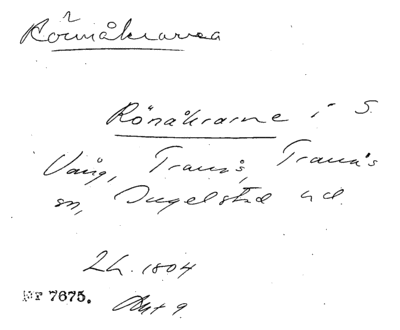 Rönnåkrarna
Rönåkrarne i S.
Vång, Tranås, Tranås
sn, Ingelstad hd.
LH. 1804
NF 7675. Akt 9